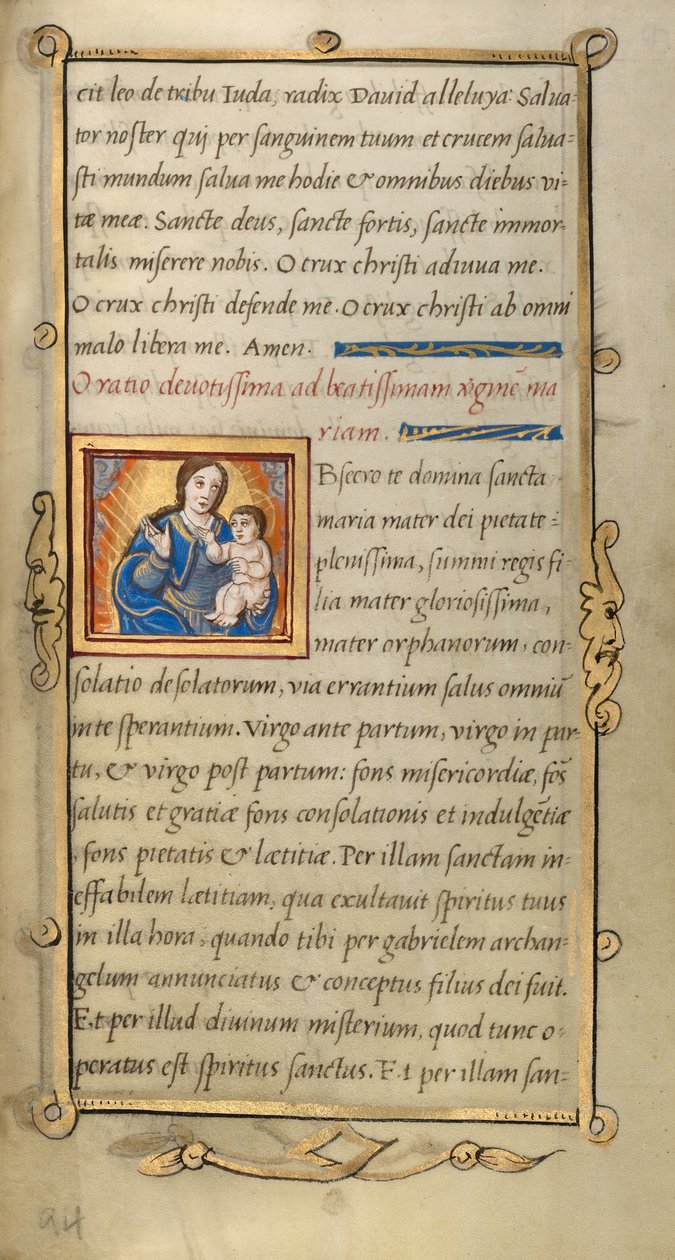 cit leo de tribu Iuda, radix Dauid alleluya: Salua=
tor noster qui per sanguinem tuum et crucem salua=
sti mundum salua me hodie & omnibus diebus vi=
tæ meæ. Sancte deus, sancte fortis, sancte immor-
talis miserere nobis. O crux christi adiuua me.
O crux christi defende me. O crux christi ab omni
malo libera me. Amen.
Oratio deuotissima ad beatissimam v̓ginē ma
riam.
Bsecro te domina sancta
maria mater dei pietate=
plenissima, summi regis fi-
lia mater gloriosissima,
mater orphanorum, con-
solatio desolatorum, via errantium salus omniū
in te sperantium. Virgo ante partum, virgo in par-
tu, & virgo post partum: fons misericordiæ, fōs
salutis et gratiæ fons consolationis et indulgētiæ
, fons pietatis & lætitiæ. Per illam sanctam in=
effabilem lætitiam, qua exultauit spiritus tuus
in illa hora, quando tibi per gabrielem archan=
gelum annunciatus & conceptus filius dei fuit.
Et per illud diuinum misterium, quod tunc o-
peratus est spiritus sanctus. Et per illam san=
94